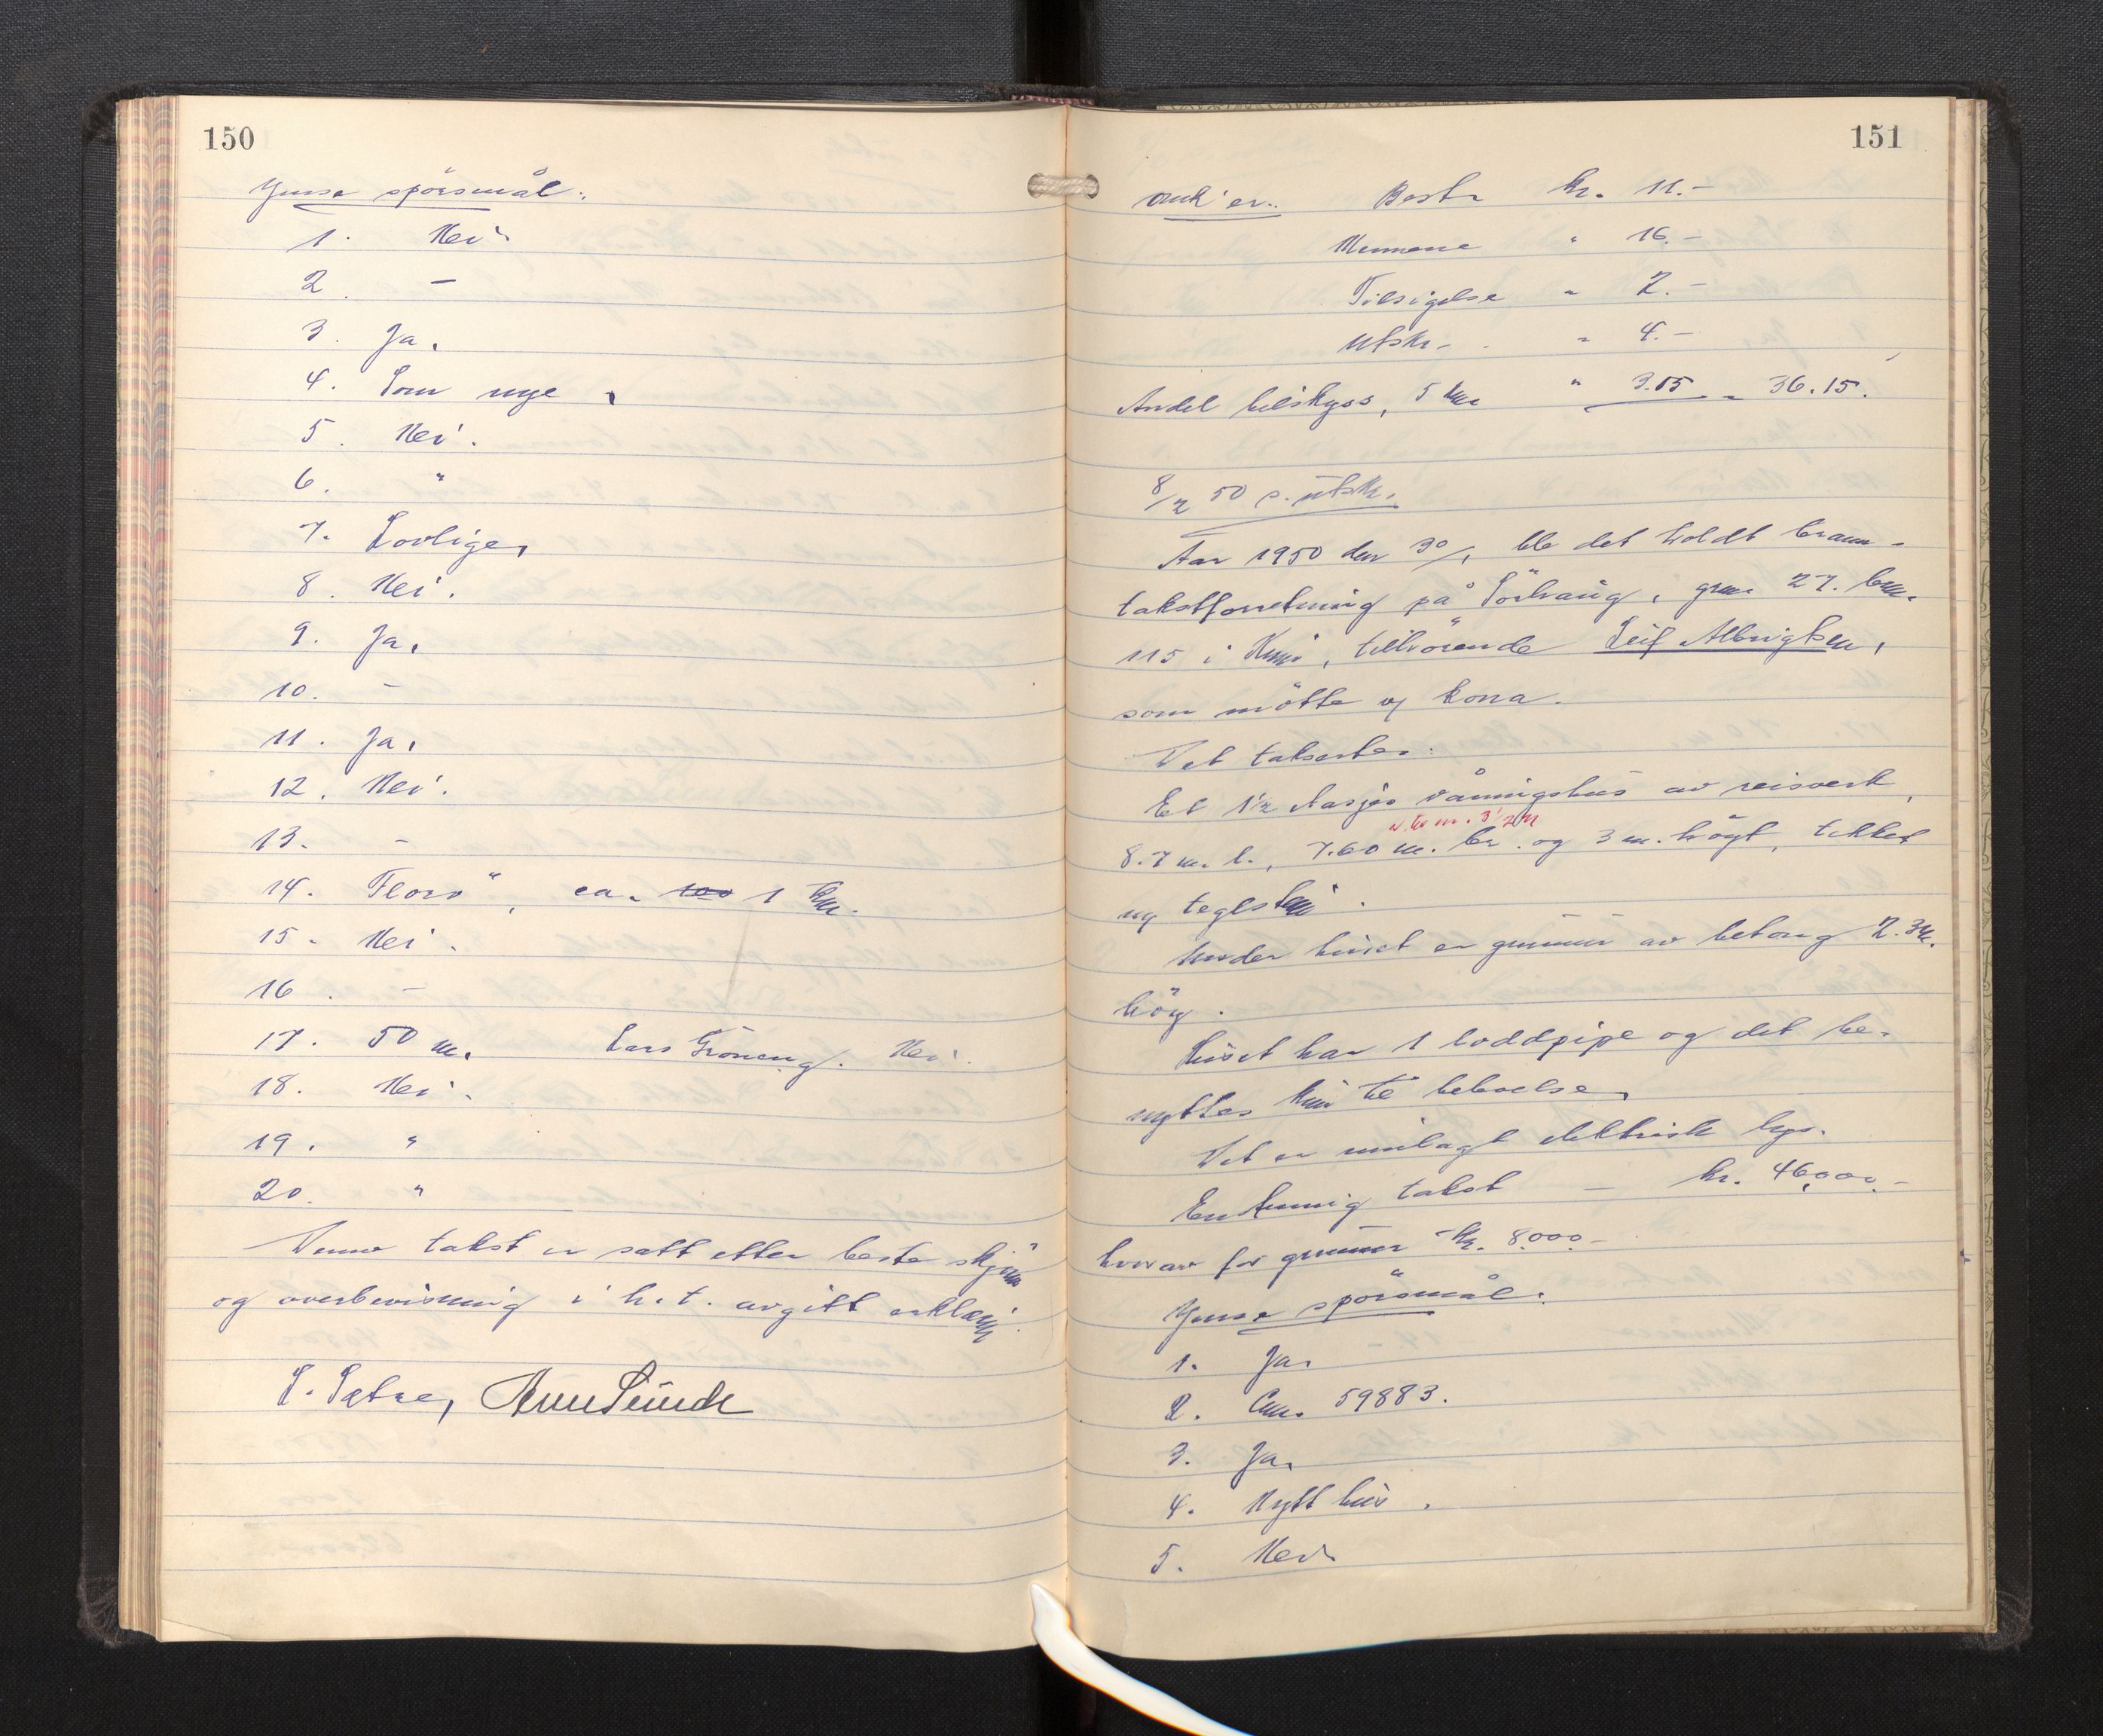 150
Ymse spörsmål:
1. Nei.
2. –
3. Ja.
4. Som nye.
5. Nei.
6. "
7. Lovlige.
8. Nei.
9. Ja.
10. –
11. Ja.
12. Nei.
13. –
14. Florö, ca. 100 1 km.
15. Nei.
16. –
17. 50 m. Lars Gröneng. Nei.
18. Nei.
19. "
20. "
Denne takst er satt etter beste skjönn
og overbevisning i h.t. avgitt erklæring.
S. Sætre,
151
Best. kr. 11.–
Mennene " 16.–
Tilsigelse " 2.–
Utskr. " 4.–
Andel bilskyss, 5 km " 3.15 = 36.15.
8/2 50 s. utskr.
Aar 1950 den 30/1 ble det holdt brann-
takstforretning på Sörhaug, gnr. 27. bnr.
115 i Kinn, tilhörende Leif Albrigtsen,
som mötte og kona.
Det takseres:
Et 1½ etasjes våningshus av reisverk,
8.7 m. l., 7.60 m. br. og 3 m. höyt, tekket
og teglstein.
Under huset er grunnmur av betong 2.3 m.
höy.
Huset har 1 loddpipe og det be-
nyttes kun til beboelse.
Det er innlagt elektrisk lys.
Enstemmig takst – kr. 46,000.–
hvorav for grunnmur kr. 8.000.–
Ymse spörsmål:
1. Ja.
2. 59883.
3. Ja.
4. Nytt hus.
5. Nei.